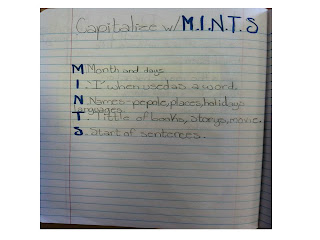 Capitalize w/M.I.N.T.S
M. Month and days
I. I when used as a word.
N. Names-pepole, places, holidays
languages
T. Tittle of books, storys, movie.
S. Start of sentences.